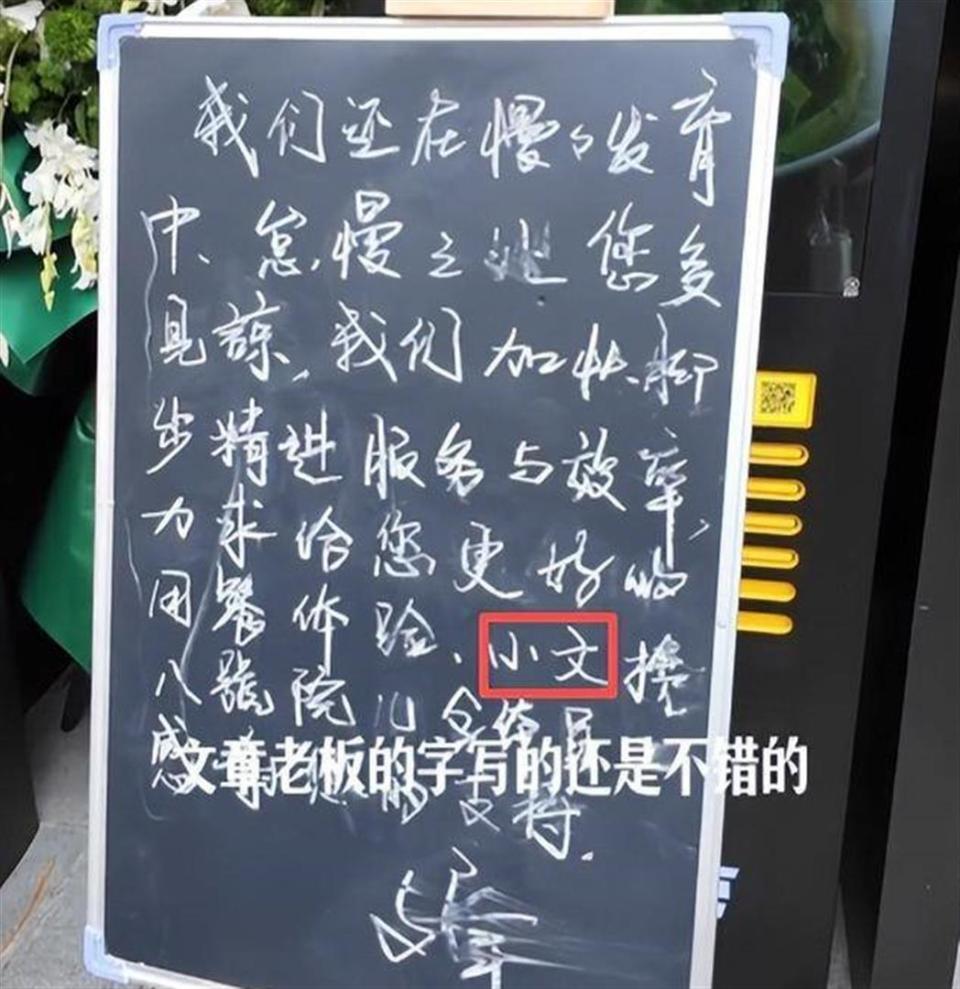 我们还在慢々发育
中、怠慢之处您多
見諒、我们加快脚
步精进服务与效率,
力求给您更好的
用餐体验、小文携
八號院儿全体员
感的支持.
文章老板的字写的还是不错的